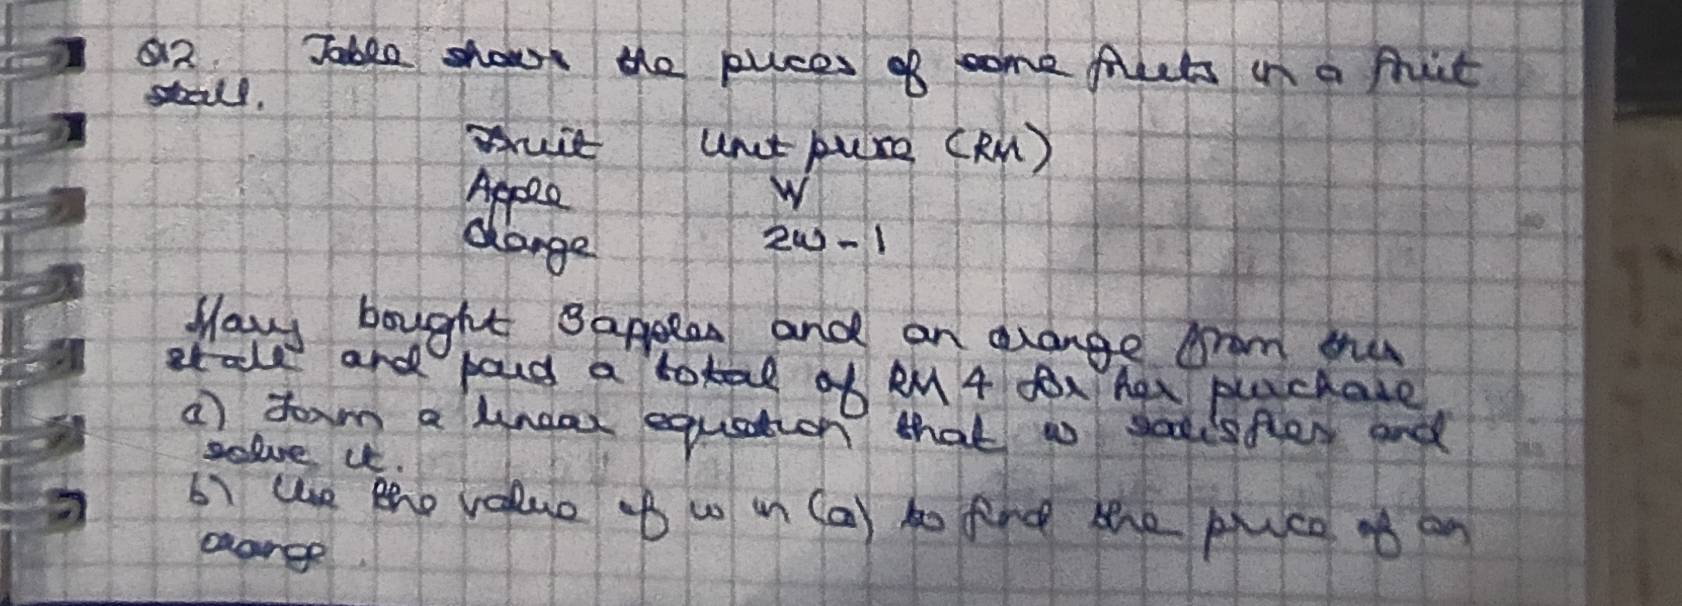 Q2. Table shows the prices of some fruits in a fruit
stall.
Fruit Unit price (RM)
Apple W
Orange 2w-1
Mary bought 3 apples and an orange from this
stall and paid a total of RM 4 for her purchase
a) Form a linear equation that w satisfies and
solve it.
b) Use the value of w in (a) to find the price of an
orange.